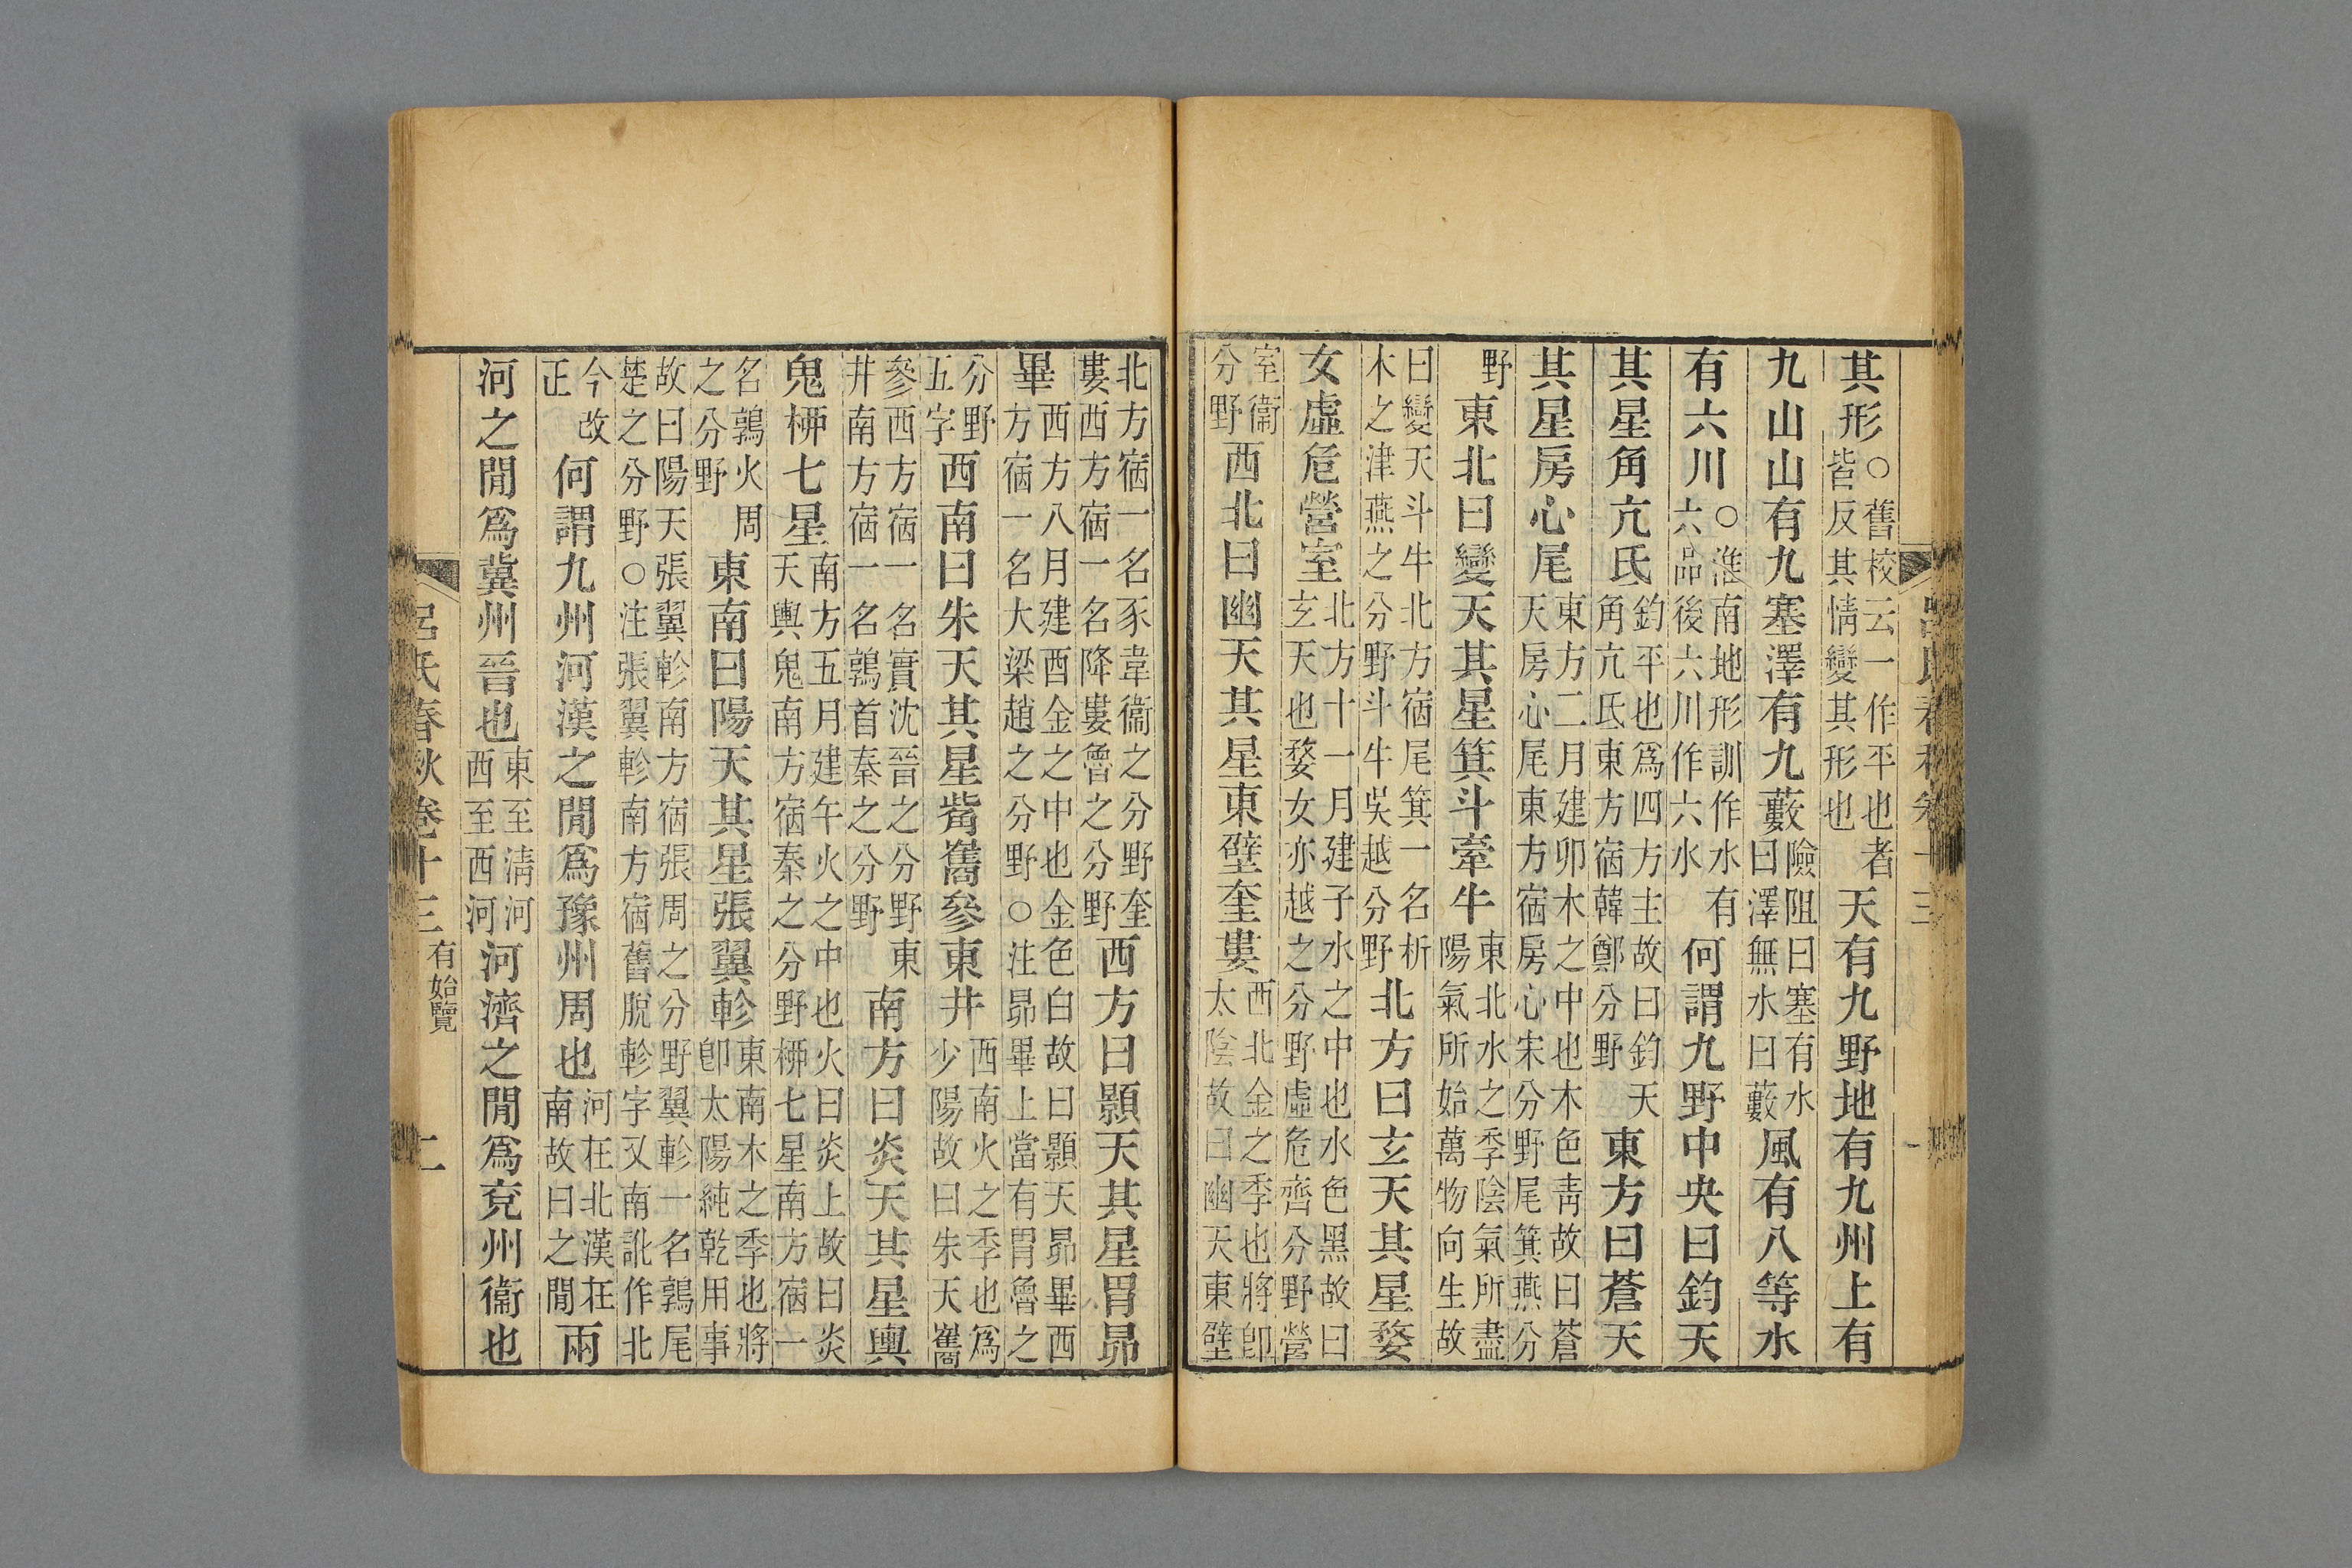 其形○舊校云一作平也者皆反其情變其形也天有九野地有九州上有
九山山有九塞澤有九藪險阻曰塞有水曰澤無水曰藪風有八等水
有六川○淮南地形訓作水有六品後六川作六水何謂九野中央曰鈞天
其星角亢氐鈞平也爲四方主故曰鈞天角亢氐東方宿韓鄭分野東方曰蒼天
其星房心尾東方二月建卯木之中也木色靑故曰蒼天房心尾東方宿房心宋分野尾箕燕分
野東北曰變天其星箕斗牽牛東北水之季陰氣所盡陽氣所始萬物向生故
曰變天斗牛北方宿尾箕一名析木之津燕之分野斗牛吳越分野北方曰玄天其星婺
女虛危營室北方十一月建子水之中也水色黑故曰玄天也婺女亦越之分野虛危齊分野營
室衞分野西北曰幽天其星東壁奎婁西北金之季也將卽太陰故曰幽天東壁
北方宿一名豕韋衞之分野奎婁西方宿一名降婁魯之分野西方曰顥天其星胃昴
畢西方八月建酉金之中也金色白故曰顥天昴畢西方宿一名大梁趙之分野○注昴畢上當有胃魯之
分野五字西南曰朱天其星觜巂參東井西南火之季也爲少陽故曰朱天巂
參西方宿一名實沈晉之分野東井南方宿一名鶉首秦之分野南方曰炎天其星輿
鬼柳七星南方五月建午火之中也火曰炎上故曰炎天輿鬼南方宿秦之分野柳七星南方宿一
名鶉火周之分野東南曰陽天其星張翼軫東南木之季也將卽太陽純乾用事
故曰陽天張翼軫南方宿張周之分野翼軫一名鶉尾楚之分野○注張翼軫南方宿舊脫軫字又南訛作北
今改正何謂九州河漢之閒爲豫州周也河在北漢在南故曰之閒兩
河之閒爲冀州晉也東至淸河西至西河河濟之閒爲兗州衞也
呂氏春秋卷十三 有始覽 二